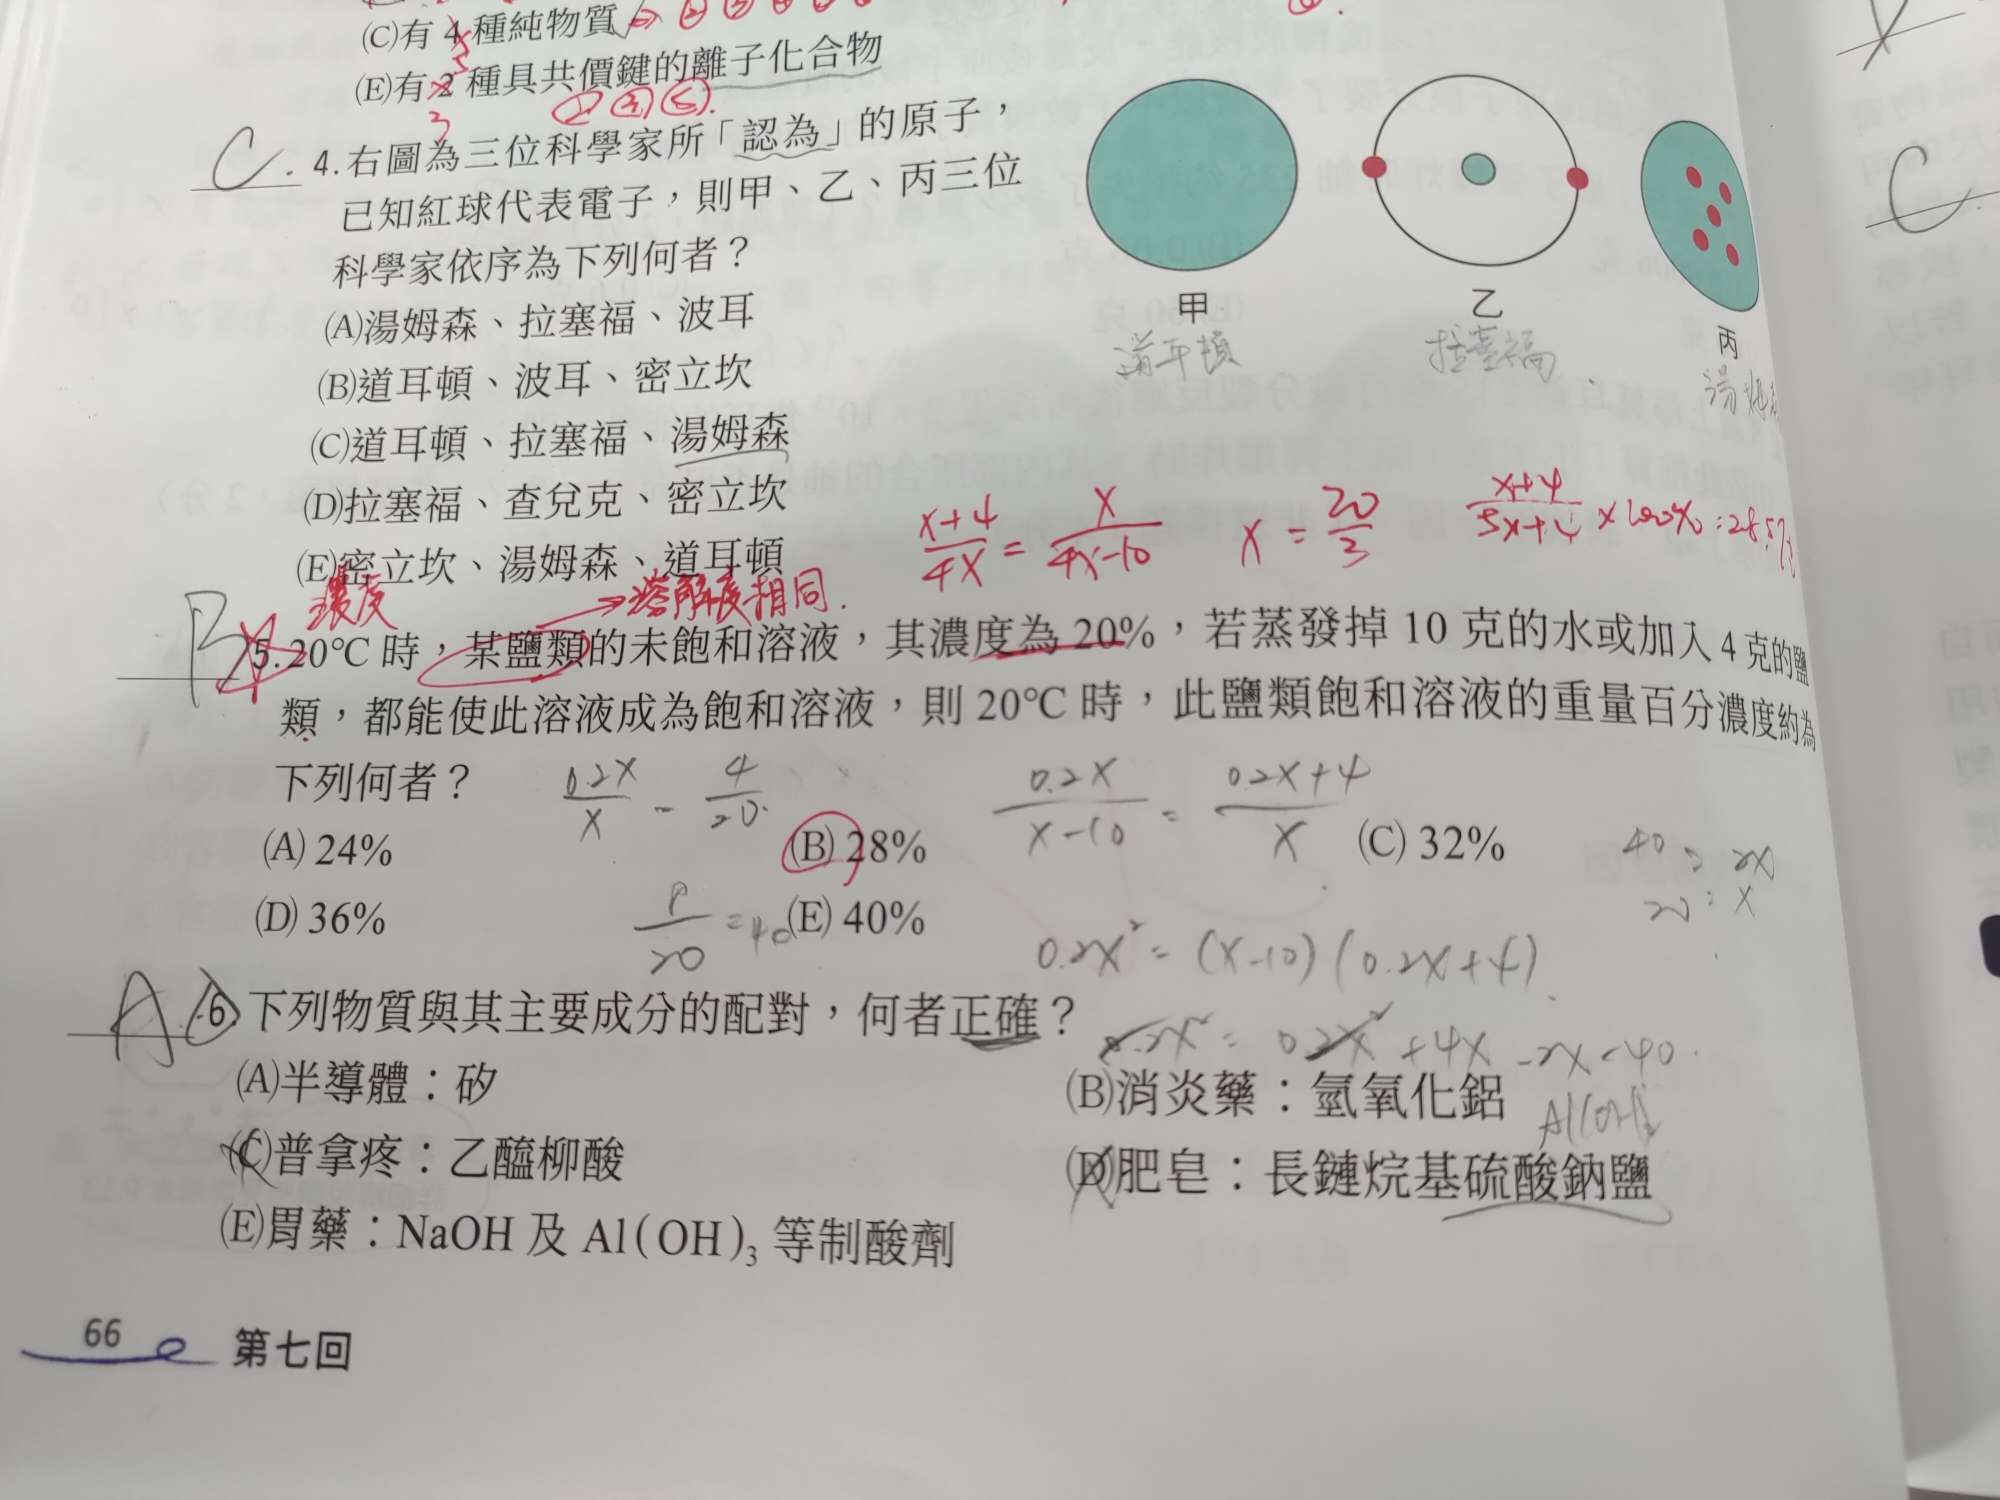 (C)有 4 種純物質
(E)有 2 種具共價鍵的離子化合物
3
C.
4.右圖為三位科學家所「認為」的原子，
已知紅球代表電子，則甲、乙、丙三位
科學家依序為下列何者？
甲
乙
丙
道耳頓
拉塞福
(A)湯姆森、拉塞福、波耳
(B)道耳頓、波耳、密立坎
(C)道耳頓、拉塞福、湯姆森
(D)拉塞福、查兌克、密立坎
(E)密立坎、湯姆森、道耳頓
x+4/4x = x/4x-10 x = 20/3 x+4/5x+4 ×100%
濃度 →溶解度相同.
B
5.20℃時，某鹽類的未飽和溶液，其濃度為 20%，若蒸發掉 10 克的水或加入 4 克的鹽
類，都能使此溶液成為飽和溶液，則 20℃時，此鹽類飽和溶液的重量百分濃度約為
下列何者？
0.2x/x 4/20 0.2x/x-10 = 0.2x+4/x
(A) 24%
(B) 28%
(C) 32%
40 = 2x
20 = x
(D) 36%
(E) 40%
0.2x² = (x-10)(0.2x+4)
A
6.下列物質與其主要成分的配對，何者正確？
0.2x² = 0.2x² +4x -2x -40
(A)半導體：矽
(B)消炎藥：氫氧化鋁
(C)普拿疼：乙醯柳酸
(D)肥皂：長鏈烷基硫酸鈉鹽
(E)胃藥：NaOH 及 Al(OH)₃ 等制酸劑
66 第七回
C.